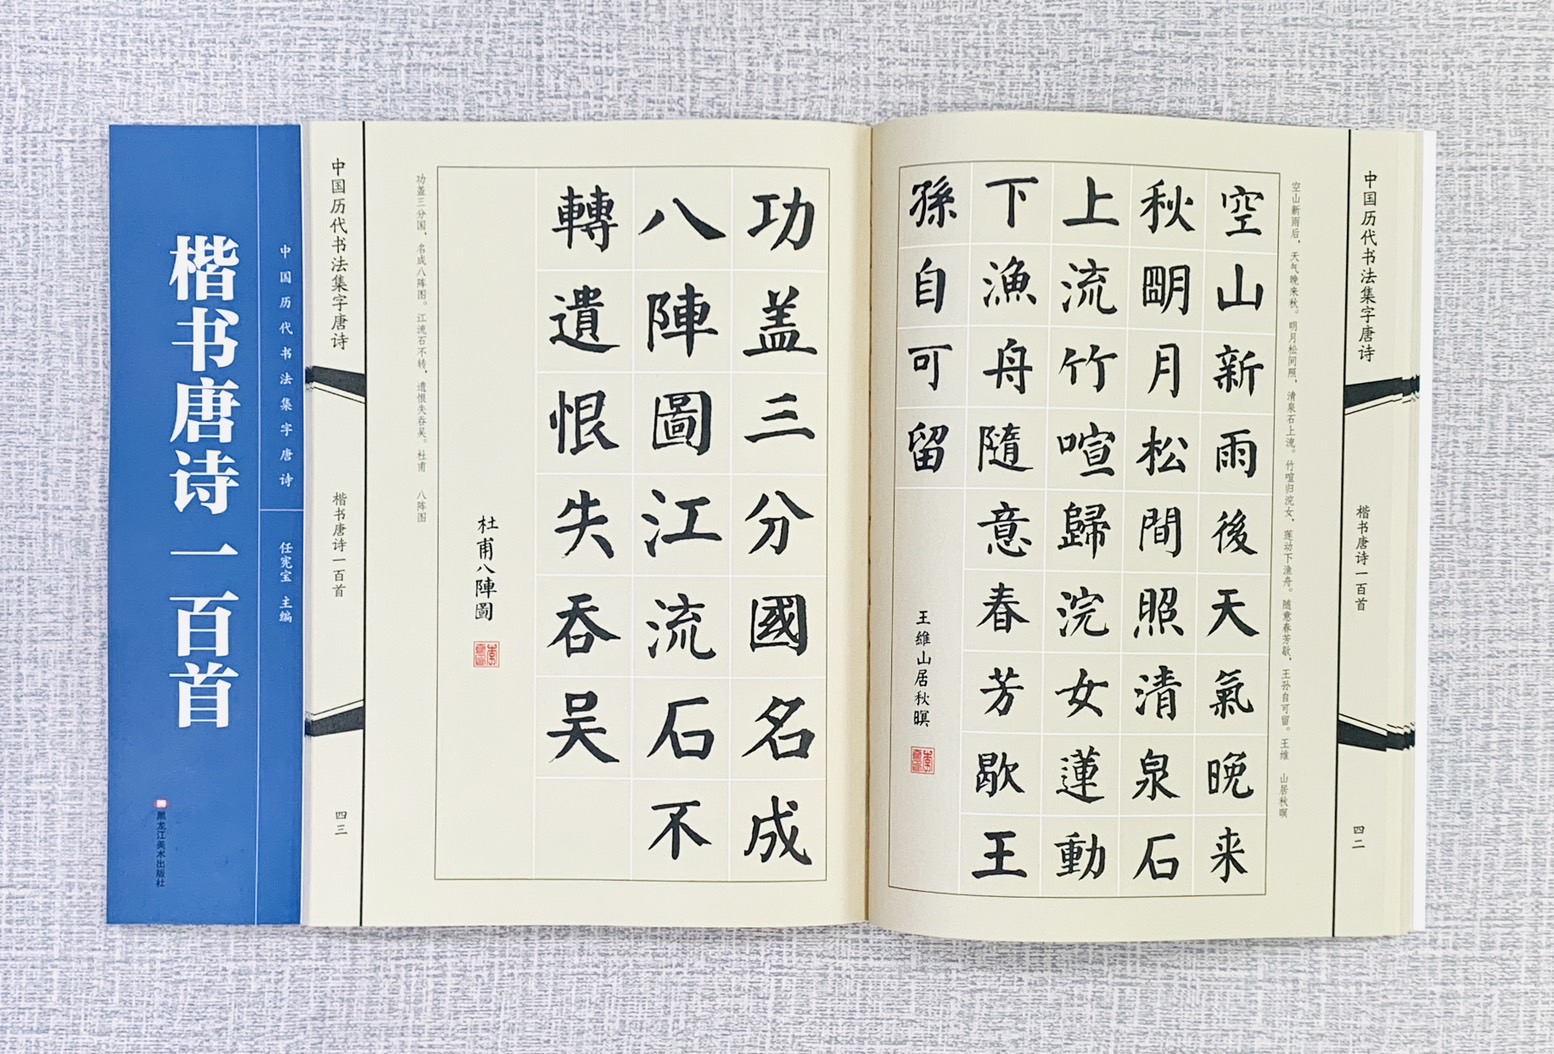 中国历代书法集字唐诗
楷书唐诗一百首
四二
空山新雨后，天气晚来秋。明月松间照，清泉石上流。竹喧归浣女，莲动下渔舟。随意春芳歇，王孙自可留。王维 山居秋暝
空山新雨後天氣晚来
秋明月松間照清泉石
上流竹喧歸浣女蓮動
下漁舟隨意春芳歇王
孫自可留
王維山居秋暝
功盖三分國名成
八陣圖江流石不
轉遺恨失吞吴
杜甫八陣圖
功盖三分国，名成八阵图。江流石不转，遗恨失吞吴。杜甫 八阵图
中国历代书法集字唐诗
楷书唐诗一百首
四三
中国历代书法集字唐诗
任宪宝 主编
楷书唐诗一百首
黑龙江美术出版社